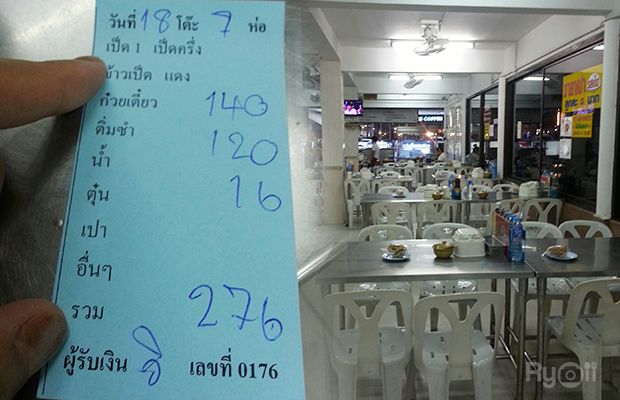 วันที่ 18 โต๊ะ 7 ห่อ
เป็ด 1 เป็ดครึ่ง
ข้าวเป็ด แดง
ก๋วยเตี๋ยว 140
ติ่มซำ 120
น้ำ 16
ตุ๋น
เปา
อื่นๆ
รวม 276
ผู้รับเงิน เลขที่ 0176
COFFEE
Ryoii